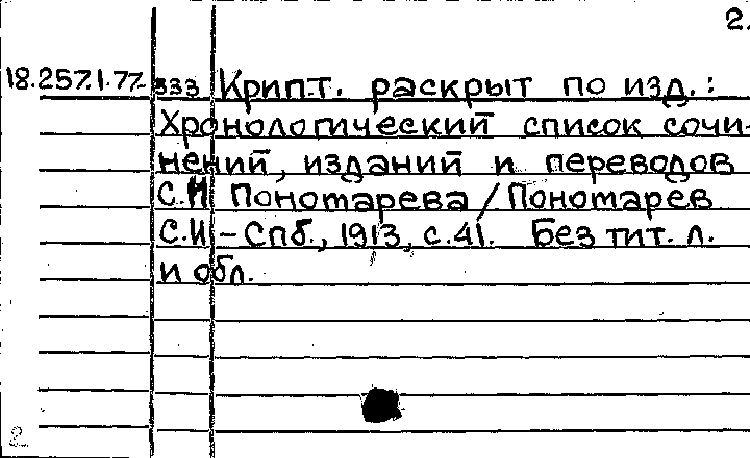 2.
18.257.1.77- 333 Крипт. раскрыт по изд.:
Хронологический список сочи-
нений, изданий и переводов
С.И Пономарева / Пономарев
С.И - Спб., 1913, с.41. Без тит. л.
и обл.
2